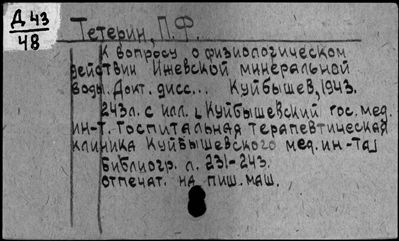 Д 43
48
Тетерин, П.Ф.
К вопросу о физиологическом
действии Ижевской минеральной
воды. Докт. дисс... Куйбышев, 1943.
243л. с илл. [Куйбышевский гос. мед.
ин-т. Госпитальная терапевтическая
клиника Куйбышевского мед. ин-та]
Библиогр. л. 231-243.
отпечат. на пиш. маш.